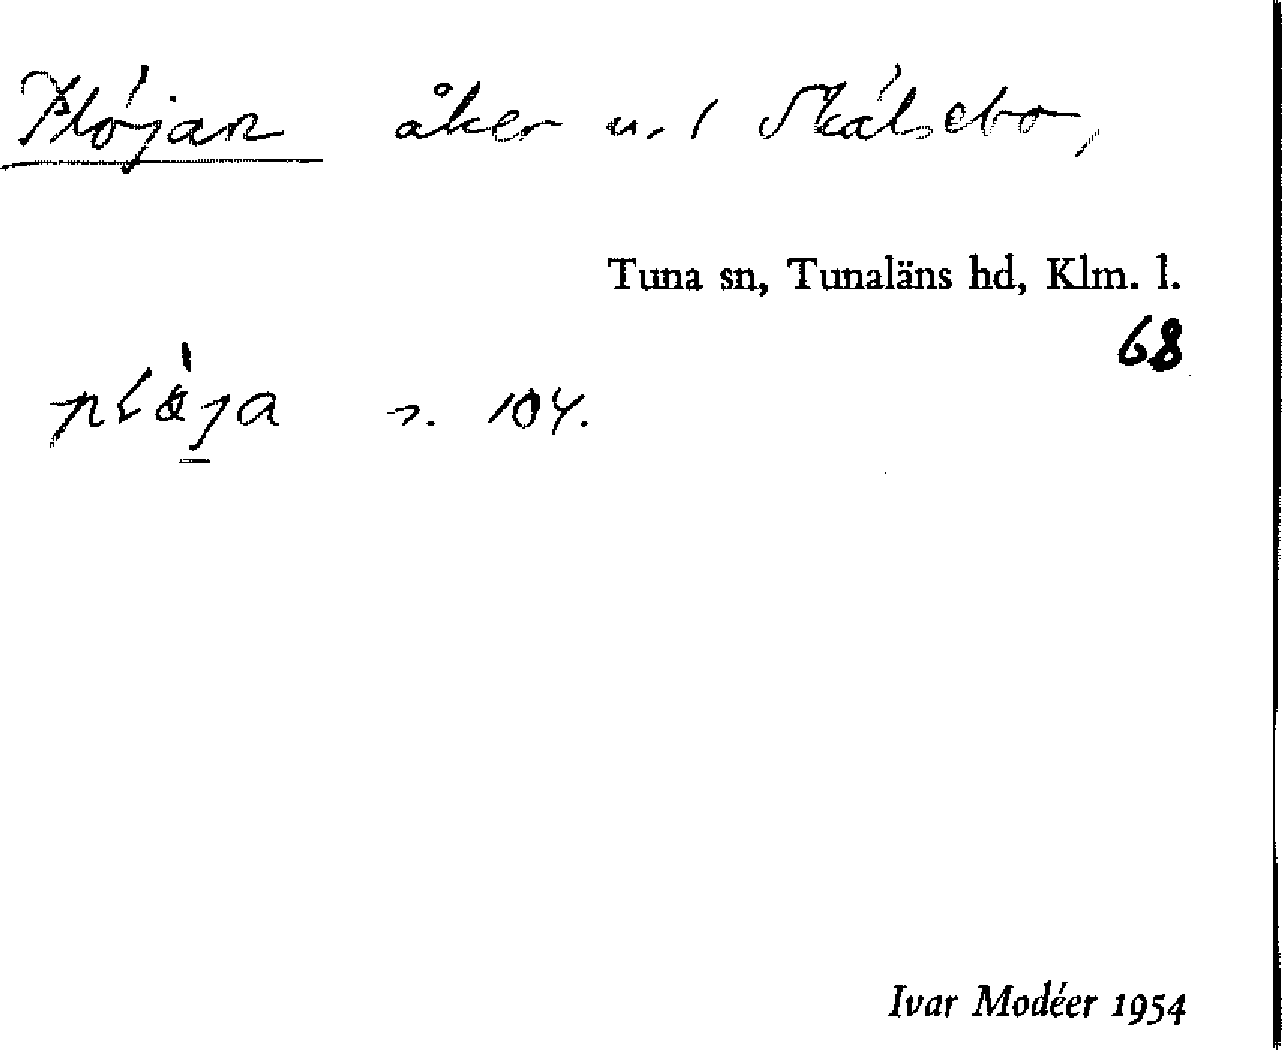 Plöjan åker u. / Skälsebo,
Tuna sn, Tunaläns hd, Klm. l.
68
s. 104.
Ivar Modéer 1954